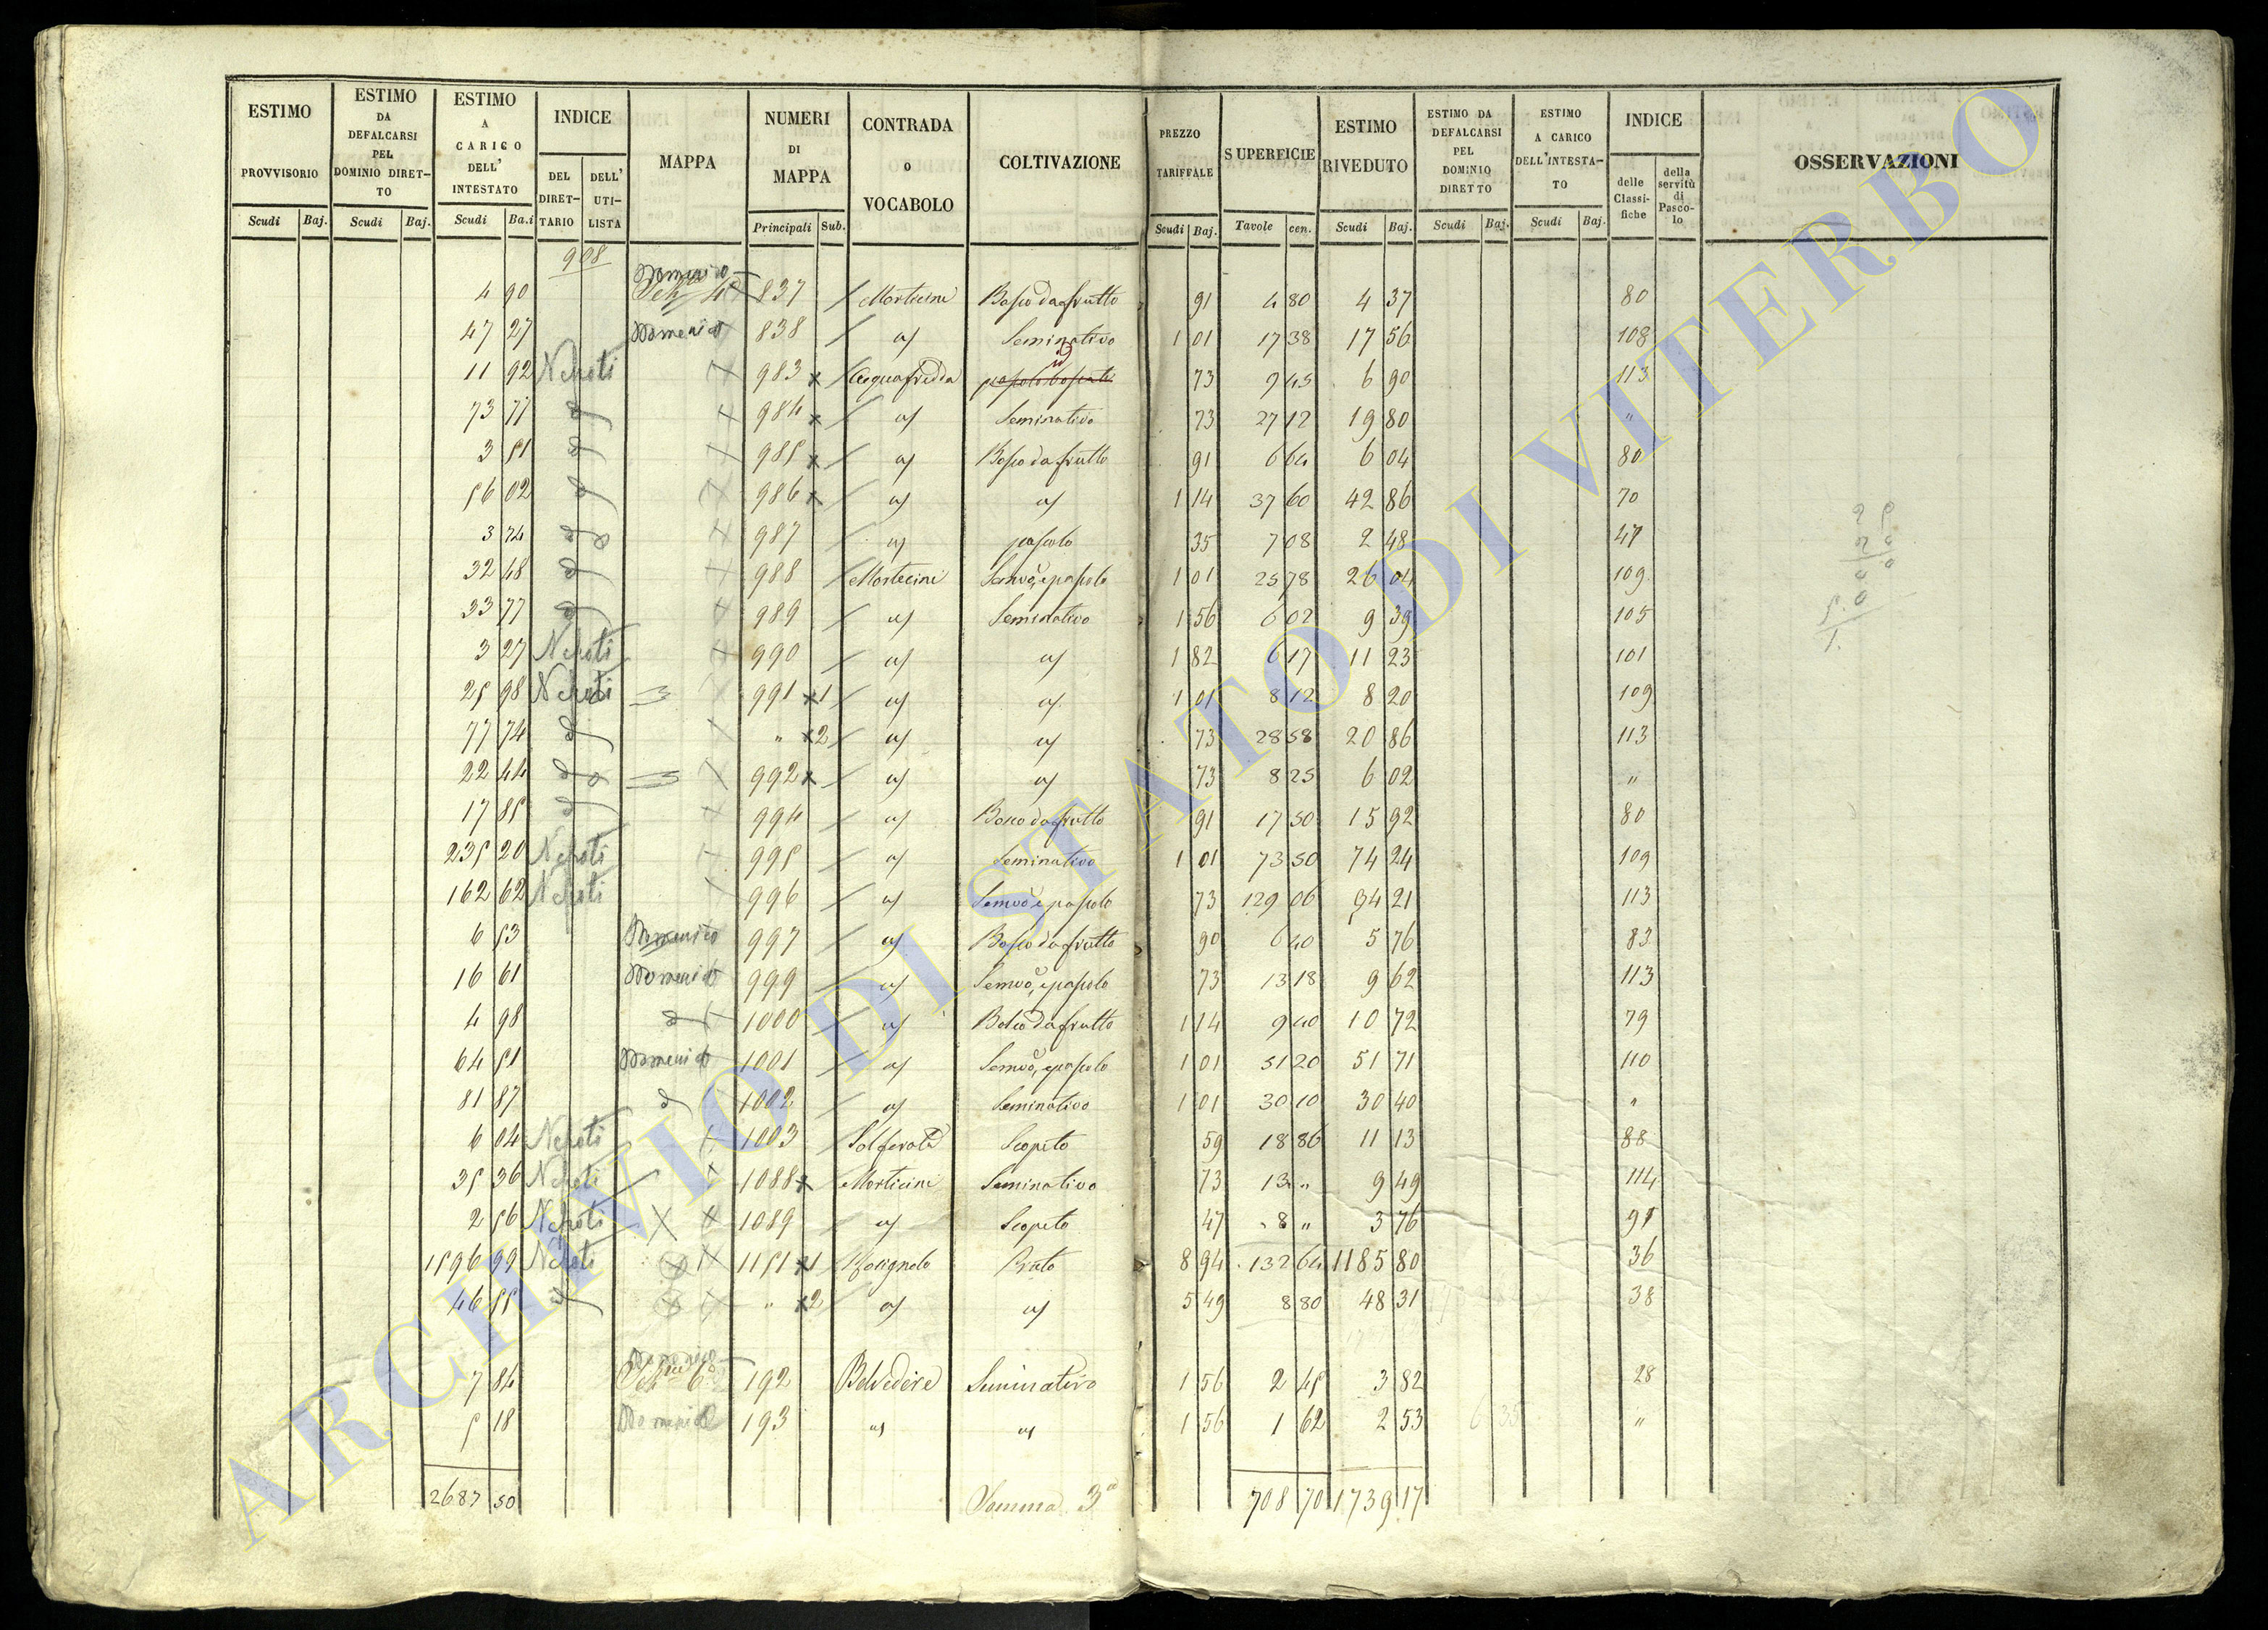 ESTIMO PROVVISORIO Scudi Baj. ESTIMO DA DEFALCARSI PEL DOMINIO DIRETTO Scudi Baj. ESTIMO A CARICO DELL' INTESTATO Scudi Ba.i INDICE DEL DIRETTARIO DELL' UTILISTA MAPPA NUMERI DI MAPPA Principali Sub. CONTRADA o VOCABOLO COLTIVAZIONE PREZZO TARIFFALE Scudi Baj. SUPERFICIE Tavole cen. ESTIMO RIVEDUTO Scudi Baj. ESTIMO DA DEFALCARSI PEL DOMINIO DIRETTO Scudi Baj. ESTIMO A CARICO DELL'INTESTATO Scudi Baj. INDICE delle Classifiche della servitù di Pascolo OSSERVAZIONI
908
Domenico
4 90 837 Morticini Bosco da frutto 91 4 80 4 37 80
47 27 Domenico 838 Seminativo 1 01 17 38 17 56 108
11 92 Nepoti 983 Acquafredda 73 9 45 6 90 113
73 77 984 Seminativo 73 27 12 19 80 "
3 51 985 Bosco da frutto 91 6 64 6 04 80
56 02 986 1 14 37 60 42 86 70
3 74 987 pascolo 35 7 08 2 48 47
32 48 988 Morticini Semvo, e pascolo 1 01 25 78 26 04 109
33 77 989 Seminativo 1 56 6 02 9 39 105
3 27 Nepoti 990 1 82 6 17 11 23 101
25 98 Nepoti 991 1 1 01 8 12 8 20 109
77 74 " 2 73 28 58 20 86 113
22 44 992 73 8 25 6 02 "
17 85 994 Bosco da frutto 91 17 50 15 92 80
235 20 Nepoti 995 Seminativo 1 01 73 50 74 24 109
162 62 Nepoti 996 Semvo e pascolo 73 129 06 94 21 113
6 53 Domenico 997 Bosco da frutto 90 6 40 5 76 83
16 61 Domenico 999 Semvo, e pascolo 73 13 18 9 62 113
4 98 1000 Bosco da frutto 1 14 9 40 10 72 79
64 51 Domenico 1001 Semvo, e pascolo 1 01 51 20 51 71 110
81 87 1002 Seminativo 1 01 30 10 30 40 "
6 04 Nepoti 1003 Solferata Scopeto 59 18 86 11 13 88
35 36 Nepoti 1088 Morticini Seminativo 73 13 " 9 49 114
2 56 Nepoti 1089 Scopeto 47 8 " 3 76 95
1596 99 Nepoti 1151 1 Prato 8 94 132 64 1185 80 36
46 55 " 2 5 49 8 80 48 31 38
Domenico
7 84 192 Belvedere Seminativo 1 56 2 45 3 82 28
5 18 Domenico 193 1 56 1 62 2 53 "
2687 50 Somma 3a 708 70 1739 17
ARCHIVIO DI STATO DI VITERBO